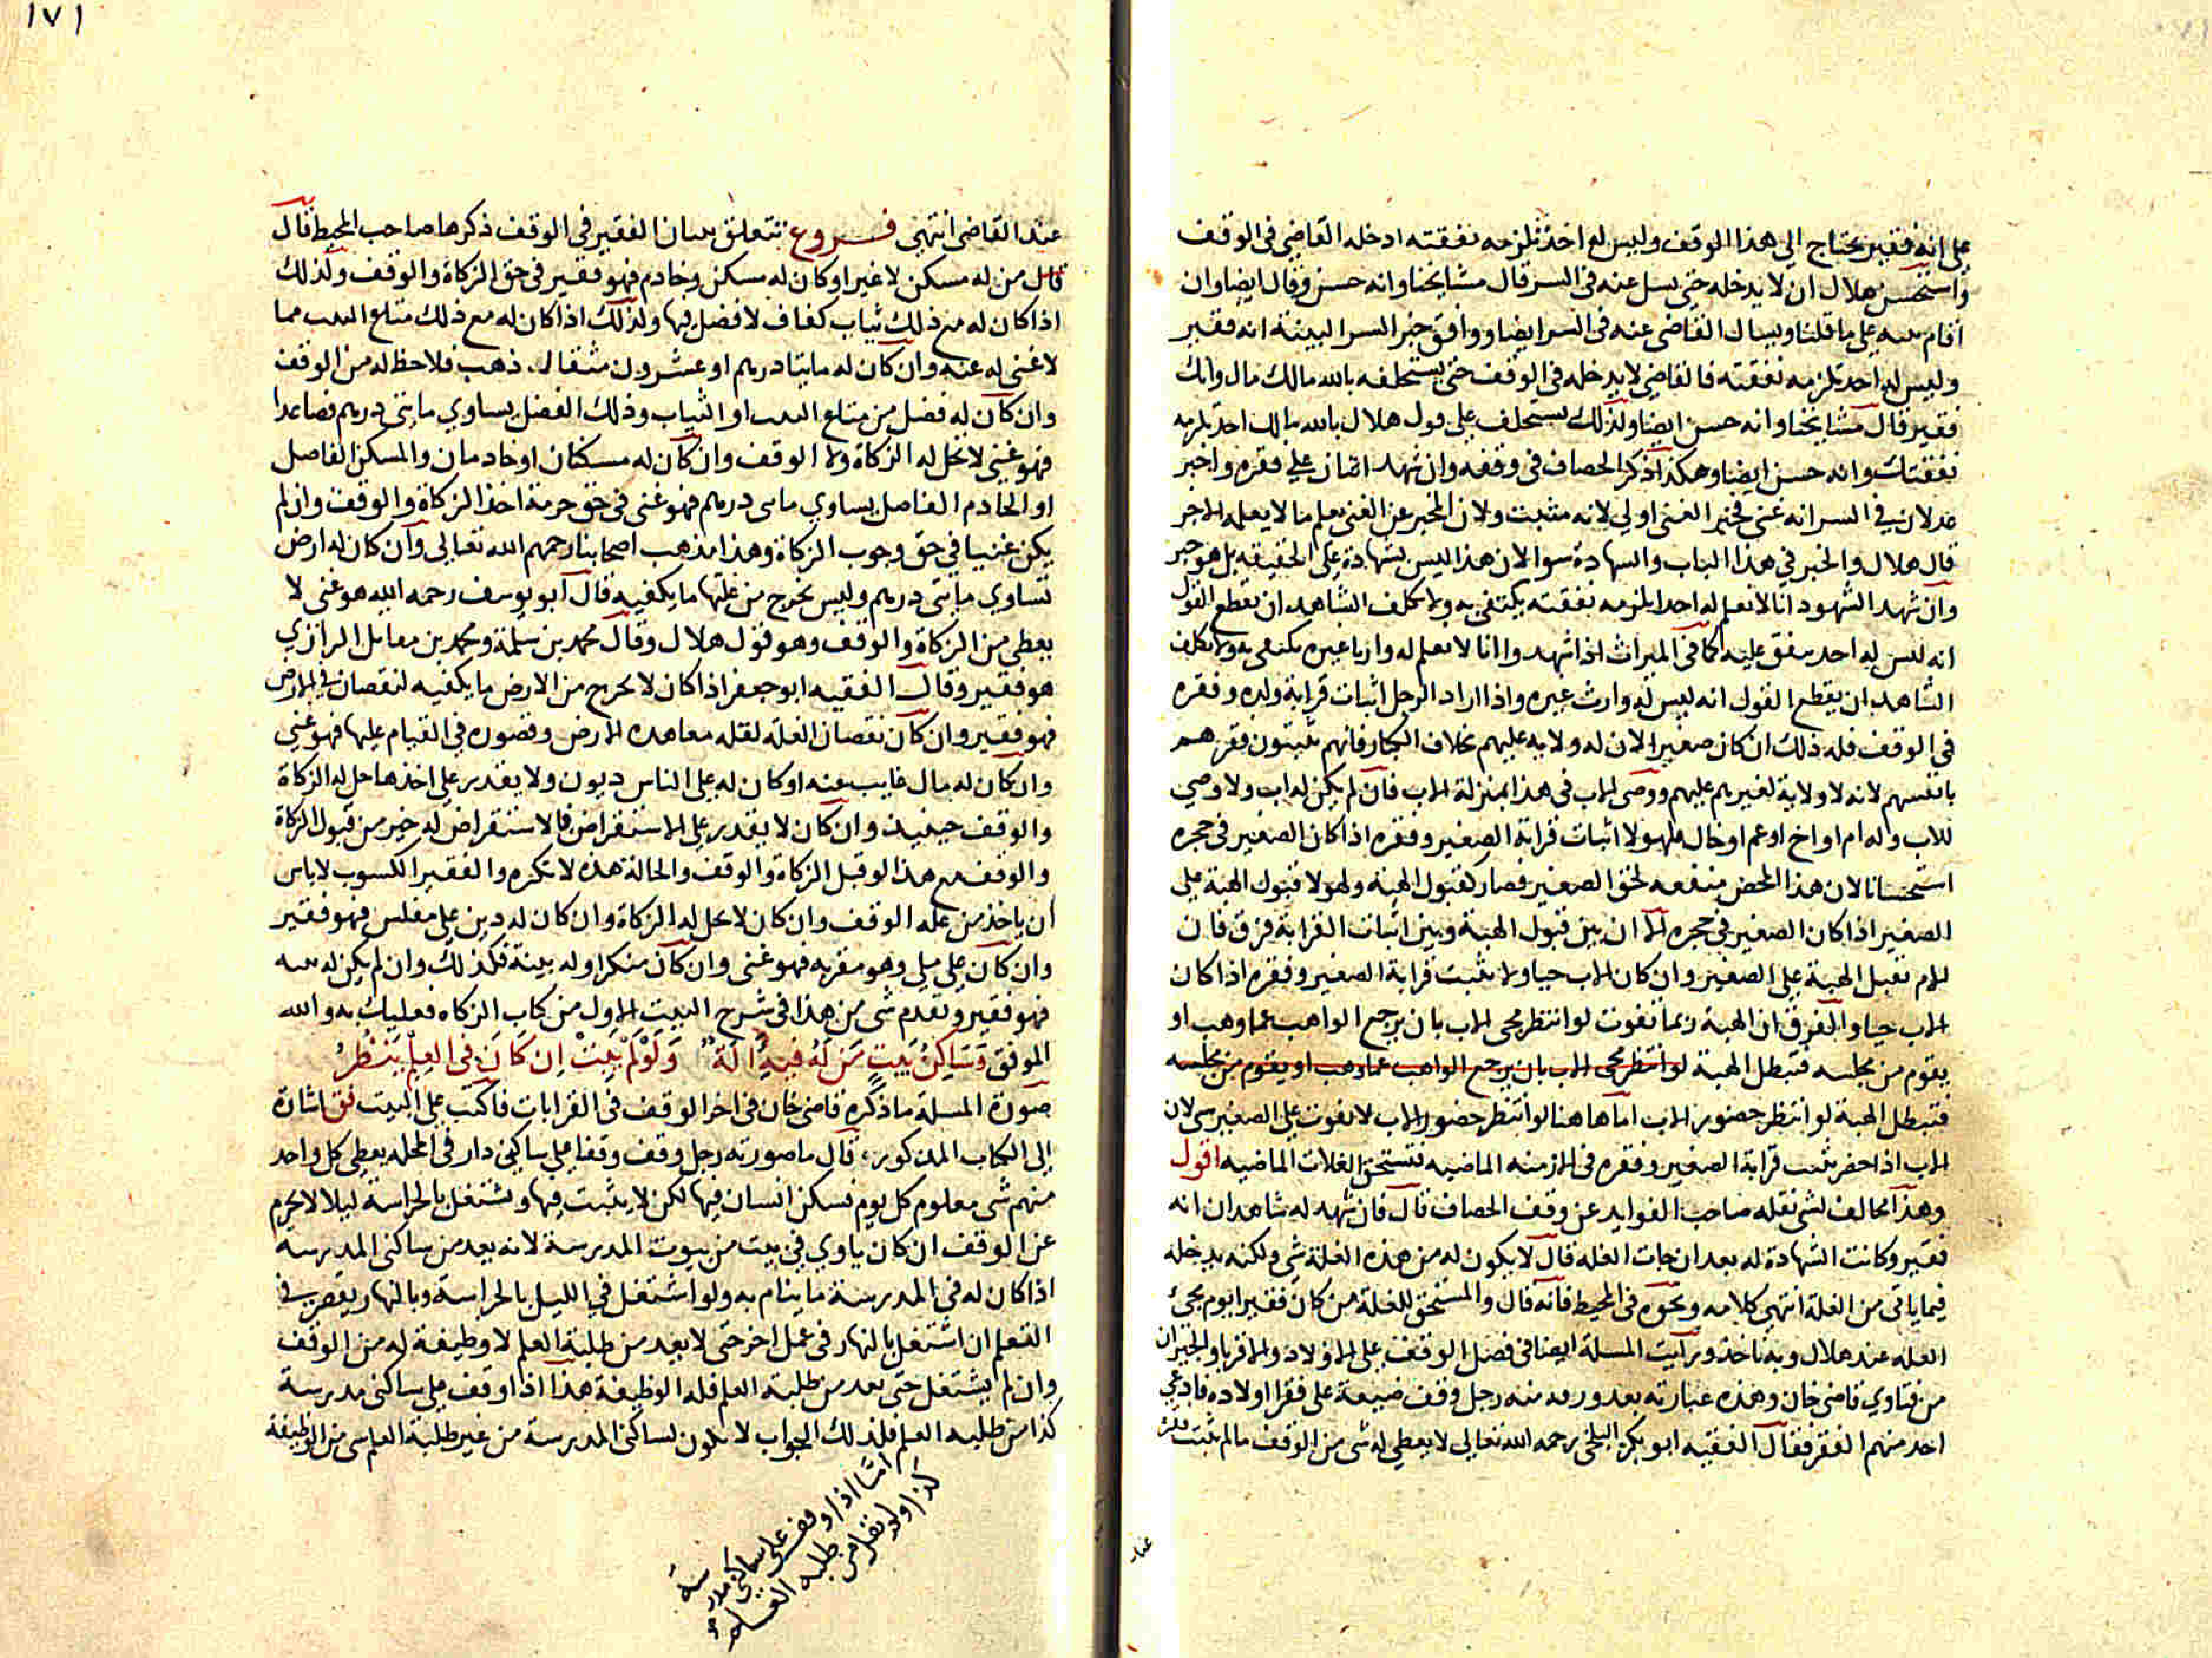 على انه فقير يحتاج الى هذا الوقف وليس له احد تلزمه نفقته ادخله القاضي في الوقف
واستحسن هلال ان لا يدخله حتى يسل عنه في السر قال مشايخنا وانه حسن وقال ايضا وان
اقام بينه على ما قلنا ويسال القاضي عنه في السر ايضا ووافق خبر السر البينة انه فقير
وليس له احد تلزمه نفقته فالقاضي لا يدخله في الوقف حتى يستحلفه بالله مالك مال وانك
فقير قال مشايخنا وانه حسن ايضا وكذلك يستحلف على قول هلال بالله مالك احد تلزمه
نفقتك وانه حسن ايضا وهكذا ذكر الخصاف في وقفه وان شهد اثنان على فقره واخبر
عدلان في السر انه غني فخبر الغنى اولى لانه مثبت ولان المخبر عن الغنى يعلم ما لا يعلمه الاخر
قال هلال والخبر في هذا الباب والشهادة سوا لان هذا ليس بشهادة على الحقيقه بل هو خبر
وان شهد الشهود انا لا نعلم له احدا يلزمه نفقته يكتفى به ولا يكلف الشاهد ان يقطع القول
انه ليس له احد ينفق عليه كما في الميراث اذا شهدوا انا لا نعلم له وارثا غيره يكتفى به ولا يكلف
الشاهد ان يقطع القول انه ليس له وارث غيره واذا اراد الرجل اثبات قرابة ولده وفقره
في الوقف فله ذلك ان كان صغيرا لان له ولايه عليهم بخلاف الكبار فانهم يثبتون فقرهم
بانفسهم لانه لا ولاية لغيرهم عليهم ووصى الاب في هذا بمنزلة الاب فان لم يكن له اب ولا وصي
للاب وله ام او اخ او عم او خال فلهولا اثبات قرابة الصغير وفقره اذا كان الصغير في حجره
استحسانا لان هذا المحض منفعه لحق الصغير فصار كقبول الهبة ولهولا قبول الهبة على
الصغير اذا كان الصغير في حجره الا ان بين قبول الهبة وبين اثبات القرابة فرق فان
للام تقبل الهبة على الصغير وان كان الاب حيا ولا تثبت قرابة الصغير وفقره اذا كان
الاب حيا والفرق ان الهبة ربما تفوت لو انتظر مجى الاب بان يرجع الواهب عما وهب او
يقوم من مجلسه فتبطل الهبة لو انتظر مجى الاب بان يرجع الواهب عما وهب او يقوم من مجلسه
فتبطل الهبة لو انتظر حضور الاب اما هاهنا لو انتظر حضور الاب لا يفوت على الصغير شى لان
الاب اذا حضر يثبت قرابة الصغير وفقره في الازمنه الماضيه فتستحق الغلات الماضيه اقول
وهذا مخالف لشى نقله صاحب الفوايد عن وقف الخصاف قال فان شهد له شاهدان انه
فقير وكانت الشهادة له بعد ان جات الغله قال لا يكون له من هذه الغلة شي ولكنه يدخله
فيما ياتي من الغلة انتهى كلامه ونحوه في المحيط فانه قال والمستحق للغلة من كان فقيرا يوم مجئ
الغله عند هلال وبه ناخذ ورايت المسلة ايضا في فصل الوقف على الاولاد والاقربا والجيران
من فتاوي قاضي خان وهذه عبارته بعد ورقه منه رجل وقف ضيعة على فقرا اولاده فادعى
احد منهم الفقر فقال الفقيه ابو بكر البلخي رحمه الله تعالى لا يعطى له شى من الوقف ما لم يثبت فقره
عند
١٧١
عند القاضي انتهى فــروع تتعلق ببيان الفقير في الوقف ذكرها صاحب المحيط قال
قال من له مسكن لا غير او كان له مسكن وخادم فهو فقير في حق الزكاة والوقف وكذلك
اذا كان له مع ذلك ثياب كفاف لا فضل فيها وكذلك اذا كان له مع ذلك متاع البيت مما
لا غنى له عنه وان كان له مايتا درهم او عشرون مثقال ذهب فلا حظ له من الوقف
وان كان له فضل من متاع البيت او الثياب وذلك الفضل يساوي مايتى درهم فصاعدا
فهو غني لا تحل له الزكاة ولا الوقف وان كان له مسكنان او خادمان والمسكن الفاضل
او الخادم الفاضل يساوي مايتى درهم فهو غنى في حق حرمة اخذ الزكاة والوقف وان لم
يكن غنيا في حق وجوب الزكاة وهذا مذهب اصحابنا رحمهم الله تعالى وان كان له ارض
تساوي مايتى درهم وليس يخرج من غلتها ما يكفيه قال ابو يوسف رحمه الله هو غنى لا
يعطى من الزكاة والوقف وهو قول هلال وقال محمد بن سلمة ومحمد بن مقاتل الرازي
هو فقير وقال الفقيه ابو جعفر اذا كان لا يخرج من الارض ما يكفيه لنقصان في الارض
فهو فقير وان كان نقصان الغله لقلة معاهده الارض وقصوره في القيام عليها فهو غني
وان كان له مال غايب عنه او كان له على الناس ديون ولا يقدر على اخذها حل له الزكاة
والوقف حينيذ وان كان لا يقدر على الاستقراض فالاستقراض له خير من قبول الزكاة
والوقف مع هذا لو قبل الزكاة والوقف والحالة هذه لا نكره والفقير الكسوب لا باس
ان ياخذ من غله الوقف وان كان لا يحل له الزكاة وان كان له دين على مفلس فهو فقير
وان كان على ملي وهو مقر به فهو غنى وان كان منكرا وله بينة فكذلك وان لم يكن له بينه
فهو فقير وتقدم شى من هذا في شرح البيت الاول من كتاب الزكاه فعليك به والله
الموفق وَسَاكِنُ بَيتٍ مَن لَهُ فيهِ اٰلَةٌ وَلَوْ لَمْ يَبِتْ اِن كَانَ في العِلْمِ يَنْظُرُ
صورة المسلة ما ذكره قاضي خان في اخر الوقف في القرابات فاكتب على البيت فق اشارة
الى الكتاب المذكور، قال ما صورته رجل وقف وقفا على ساكني دار في المحلة يعطى كل واحد
منهم شى معلوم كل يوم فسكن انسان فيها لكن لا يثبت فيها ويشتغل بالحراسة ليلا لا يحرم
عن الوقف ان كان ياوي في بيت من بيوت المدرسة لانه يعد من ساكني المدرسة
اذا كان له في المدرسة ما ينام به ولو اشتغل في الليل بالحراسة وبالنهار يقصر في
التعلم ان اشتغل بالنهار في عمل اخر حتى لا يعد من طلبة العلم لا وظيفة له من الوقف
وان لم يشتغل حتى يعد من طلبة العلم فله الوظيفة هذا اذا وقف على ساكني مدرسة
كذا من طلبه العلم فكذلك الجواب لا يكون لساكني المدرسة من غير طلبة العلم شى من الوظيفة
امّا اذا وقف على ساكني مدرسة
كذا ولم يقل من طلبة العلم